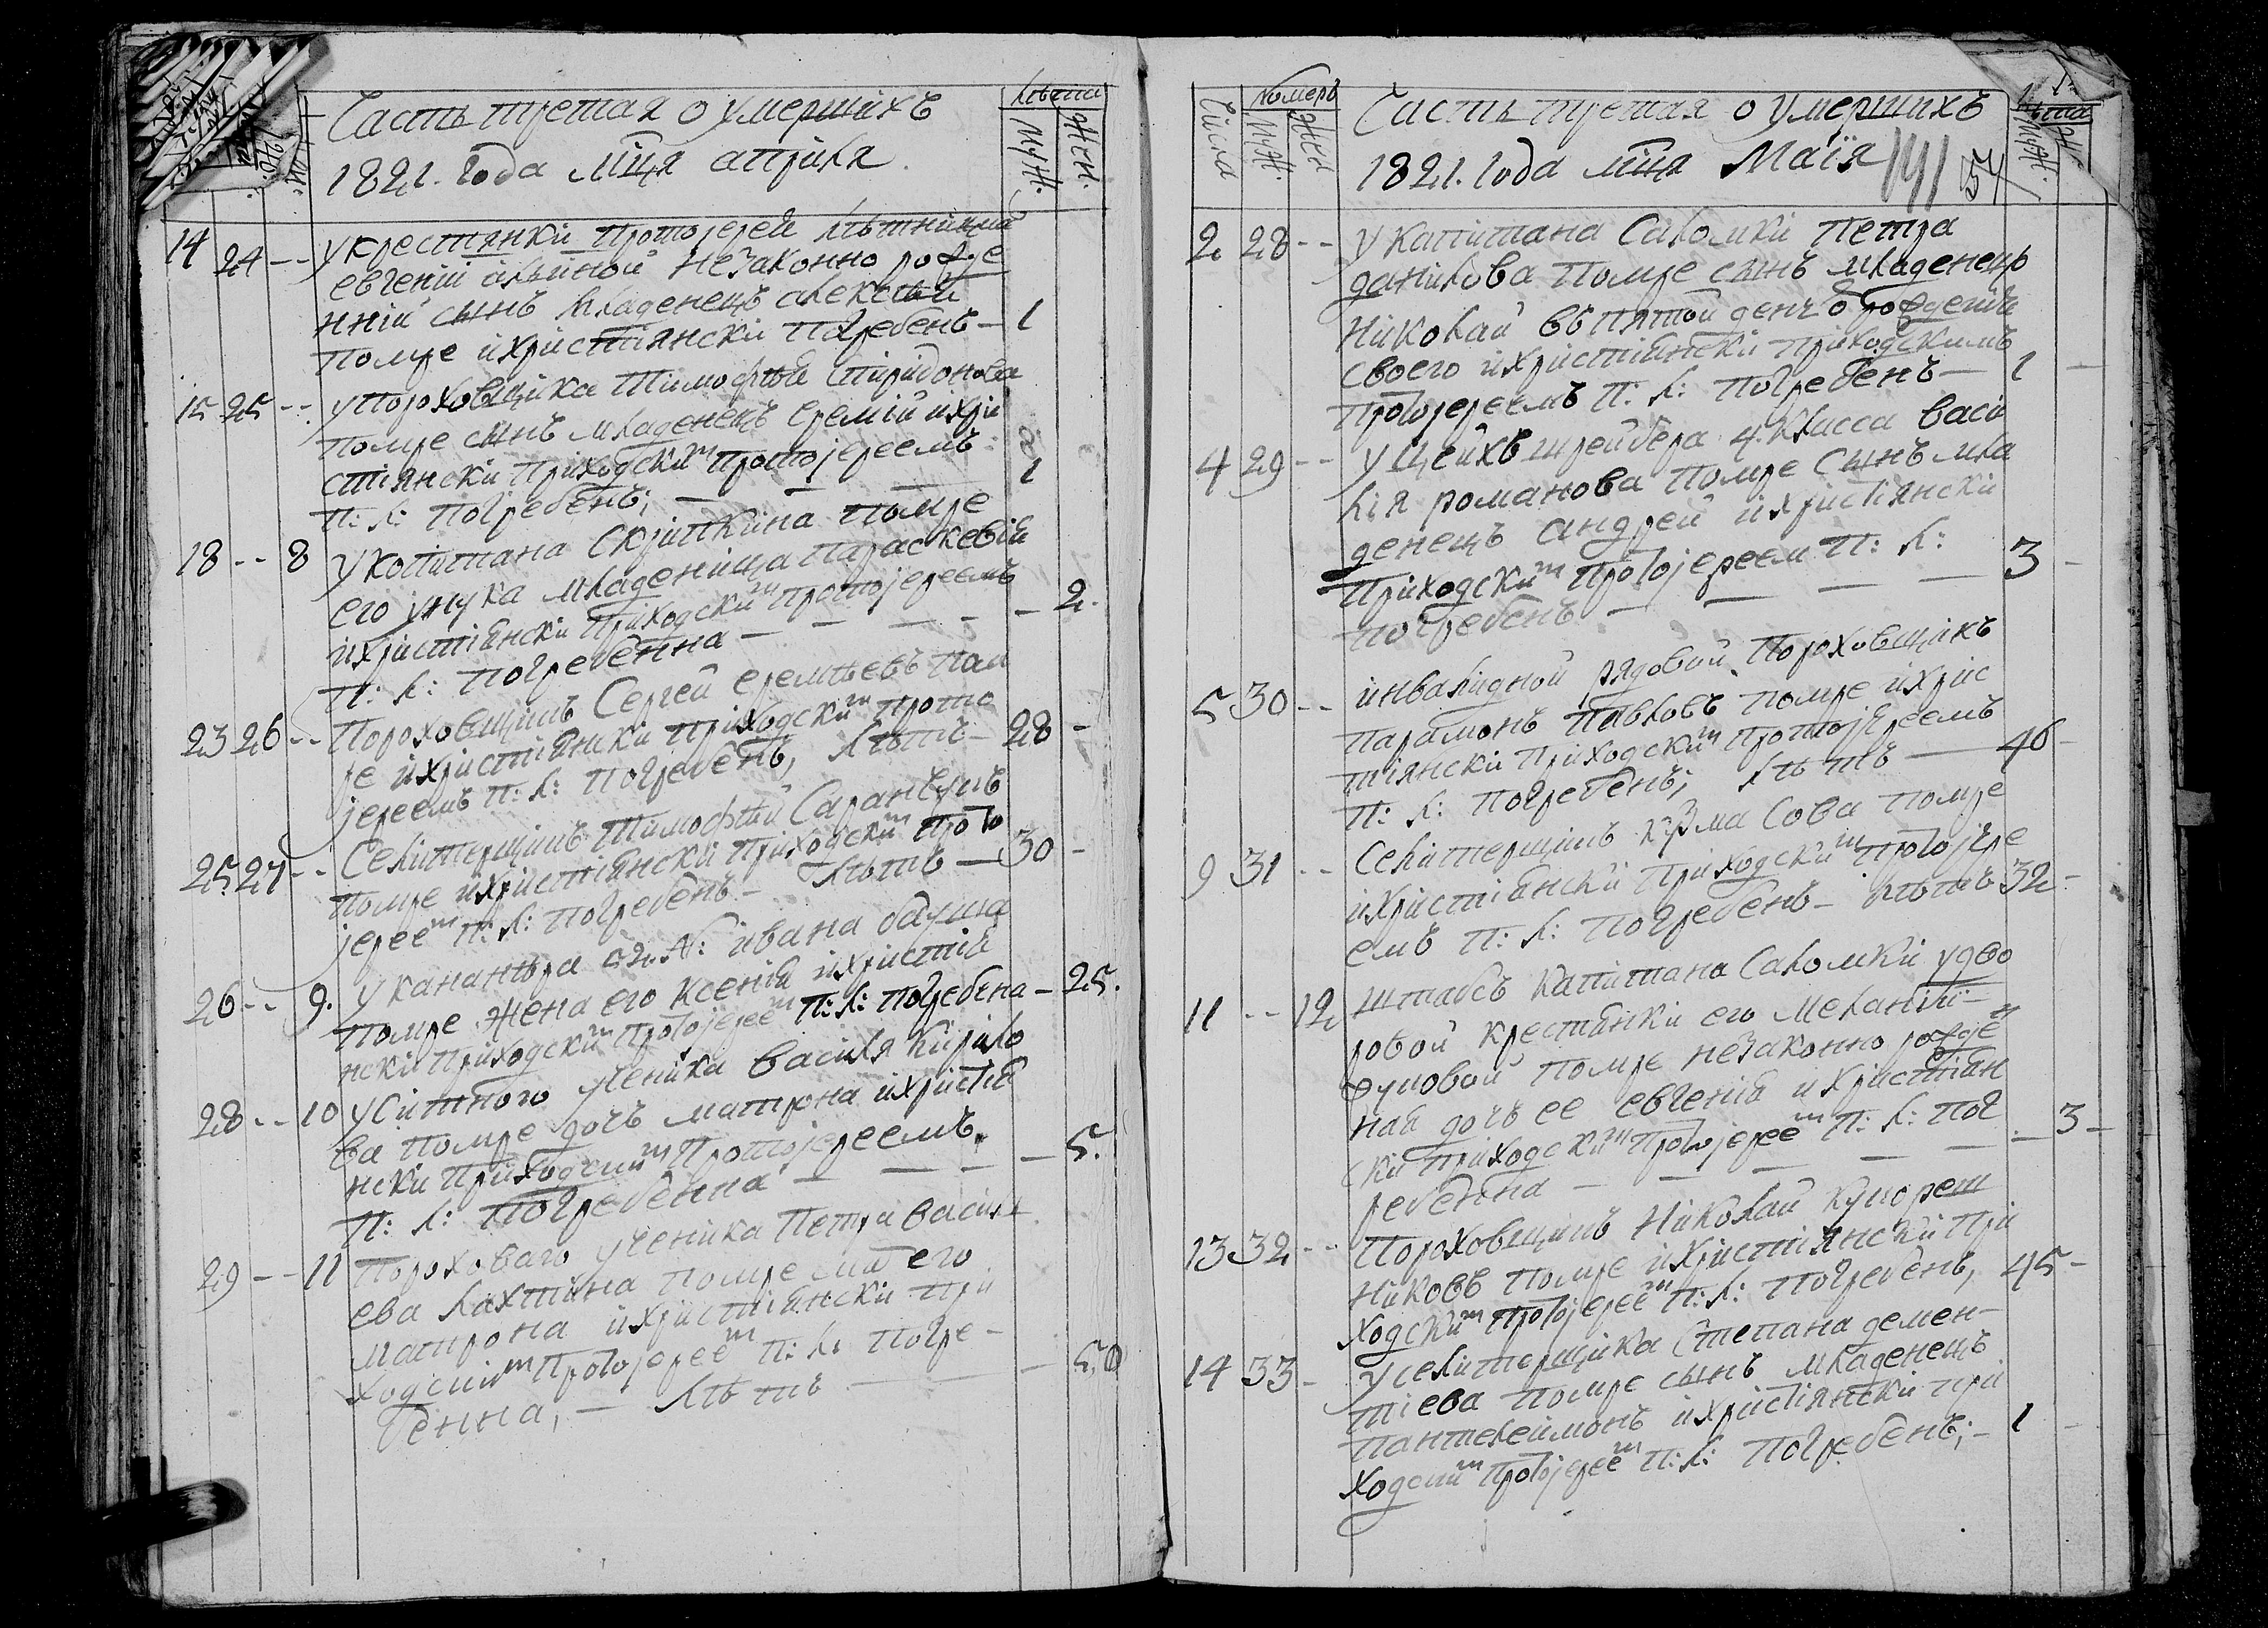 Часть третая о умершихъ
Лѣта
1821. года мца априля.
Муж. Жен.
14 24 -- у крестянки протоjерей
евгеніи ильиной незаконно рожде
нній сынъ младенецъ алексѣй
помре и христянски погребенъ — 1
15 25 -- у пороховщика Тимофѣя Спиридонова
помре сынъ младенецъ еремій и хри
стіянски приходскимъ протоjереемъ
П: Л: погребенъ; — — — 1
18 -- 8 у копитана Скрипкина помре
его унука младеница параскевія
и христіянски приходским протоjереемъ
П: Л: погребенна — — — — 2.
23 26 -- Пороховщикъ Сергей еремѣевъ пом
ре и христіянски приходским прото
jереемъ П: Л: погребенъ, лѣтъ — 28 -
25 27 -- Селитерщикъ Тимофѣй Саранчукъ
помре и христіянски приходским прото
jереем П: Л: погребенъ — лѣтъ — 30 -
26 -- 9. у канонѣра 52. №: ивана
помре жена его Ксенія и христія
нски приходским протоjереем П: Л: погребена — 25.
28 -- 10 у Ситного ученика Василя Кирило
ва помре дочь матрона и христія
нски приходским протоjереемъ
П: Л: погребенна — — — — 5.
29 -- 11 Пороховаго ученика Петра Василі
ева Лахтина помре мат его
матрона и христіянски при
ходским протоjереем П: Л: погре-
бенна, — лѣтъ — — 50
Числа
Номеръ
Муж. Жен
Часть третая о умершихъ
лѣта
1821. года мца Маія
141
57
Муж.
2 28 -- у капитана Саломки Петра
данилова помре сынъ младенецъ
Николай въ пятой день о рожденія
своего и христіянски приходскимъ
протоjереемъ П: Л: погребенъ — 1 -
4 29 -- у цейхшрейбера 4. класса васи
лія романова помре сынъ мла
денецъ андрей и христіянски
приходским протоjереем П: Л:
погребенъ — — — — 3 -
5 30 -- инвалидной рядовой пороховщикъ
парамонъ павловъ помре и хрис
тіянски приходским протоjереемъ
П: Л: погребенъ; лѣтъ — 46 -
9 31 -- Селитерщикъ кузма Сова помре
и христіянски приходским протоjере
емъ П: Л: погребенъ — лѣтъ 32 -
11 -- 12 штабсъ капитана Саломки удво
ровой крестянки его Меланіи
помре незаконно рожден
ная дочь ее евгенія и христіян
ски приходским протоjереем П: Л: пог
ребенна — — — — — 3 -
13 32 -- Пороховщикъ Николай
никовъ помре и христіянски при
ходским протоjереем П: Л: погребенъ, 45 -
14 33 - у селитерщика Степана демен-
тіева помре сынъ младенецъ
пантелеймонъ и христіянски при
ходским протоjереем П: Л: погребенъ; — 1 -